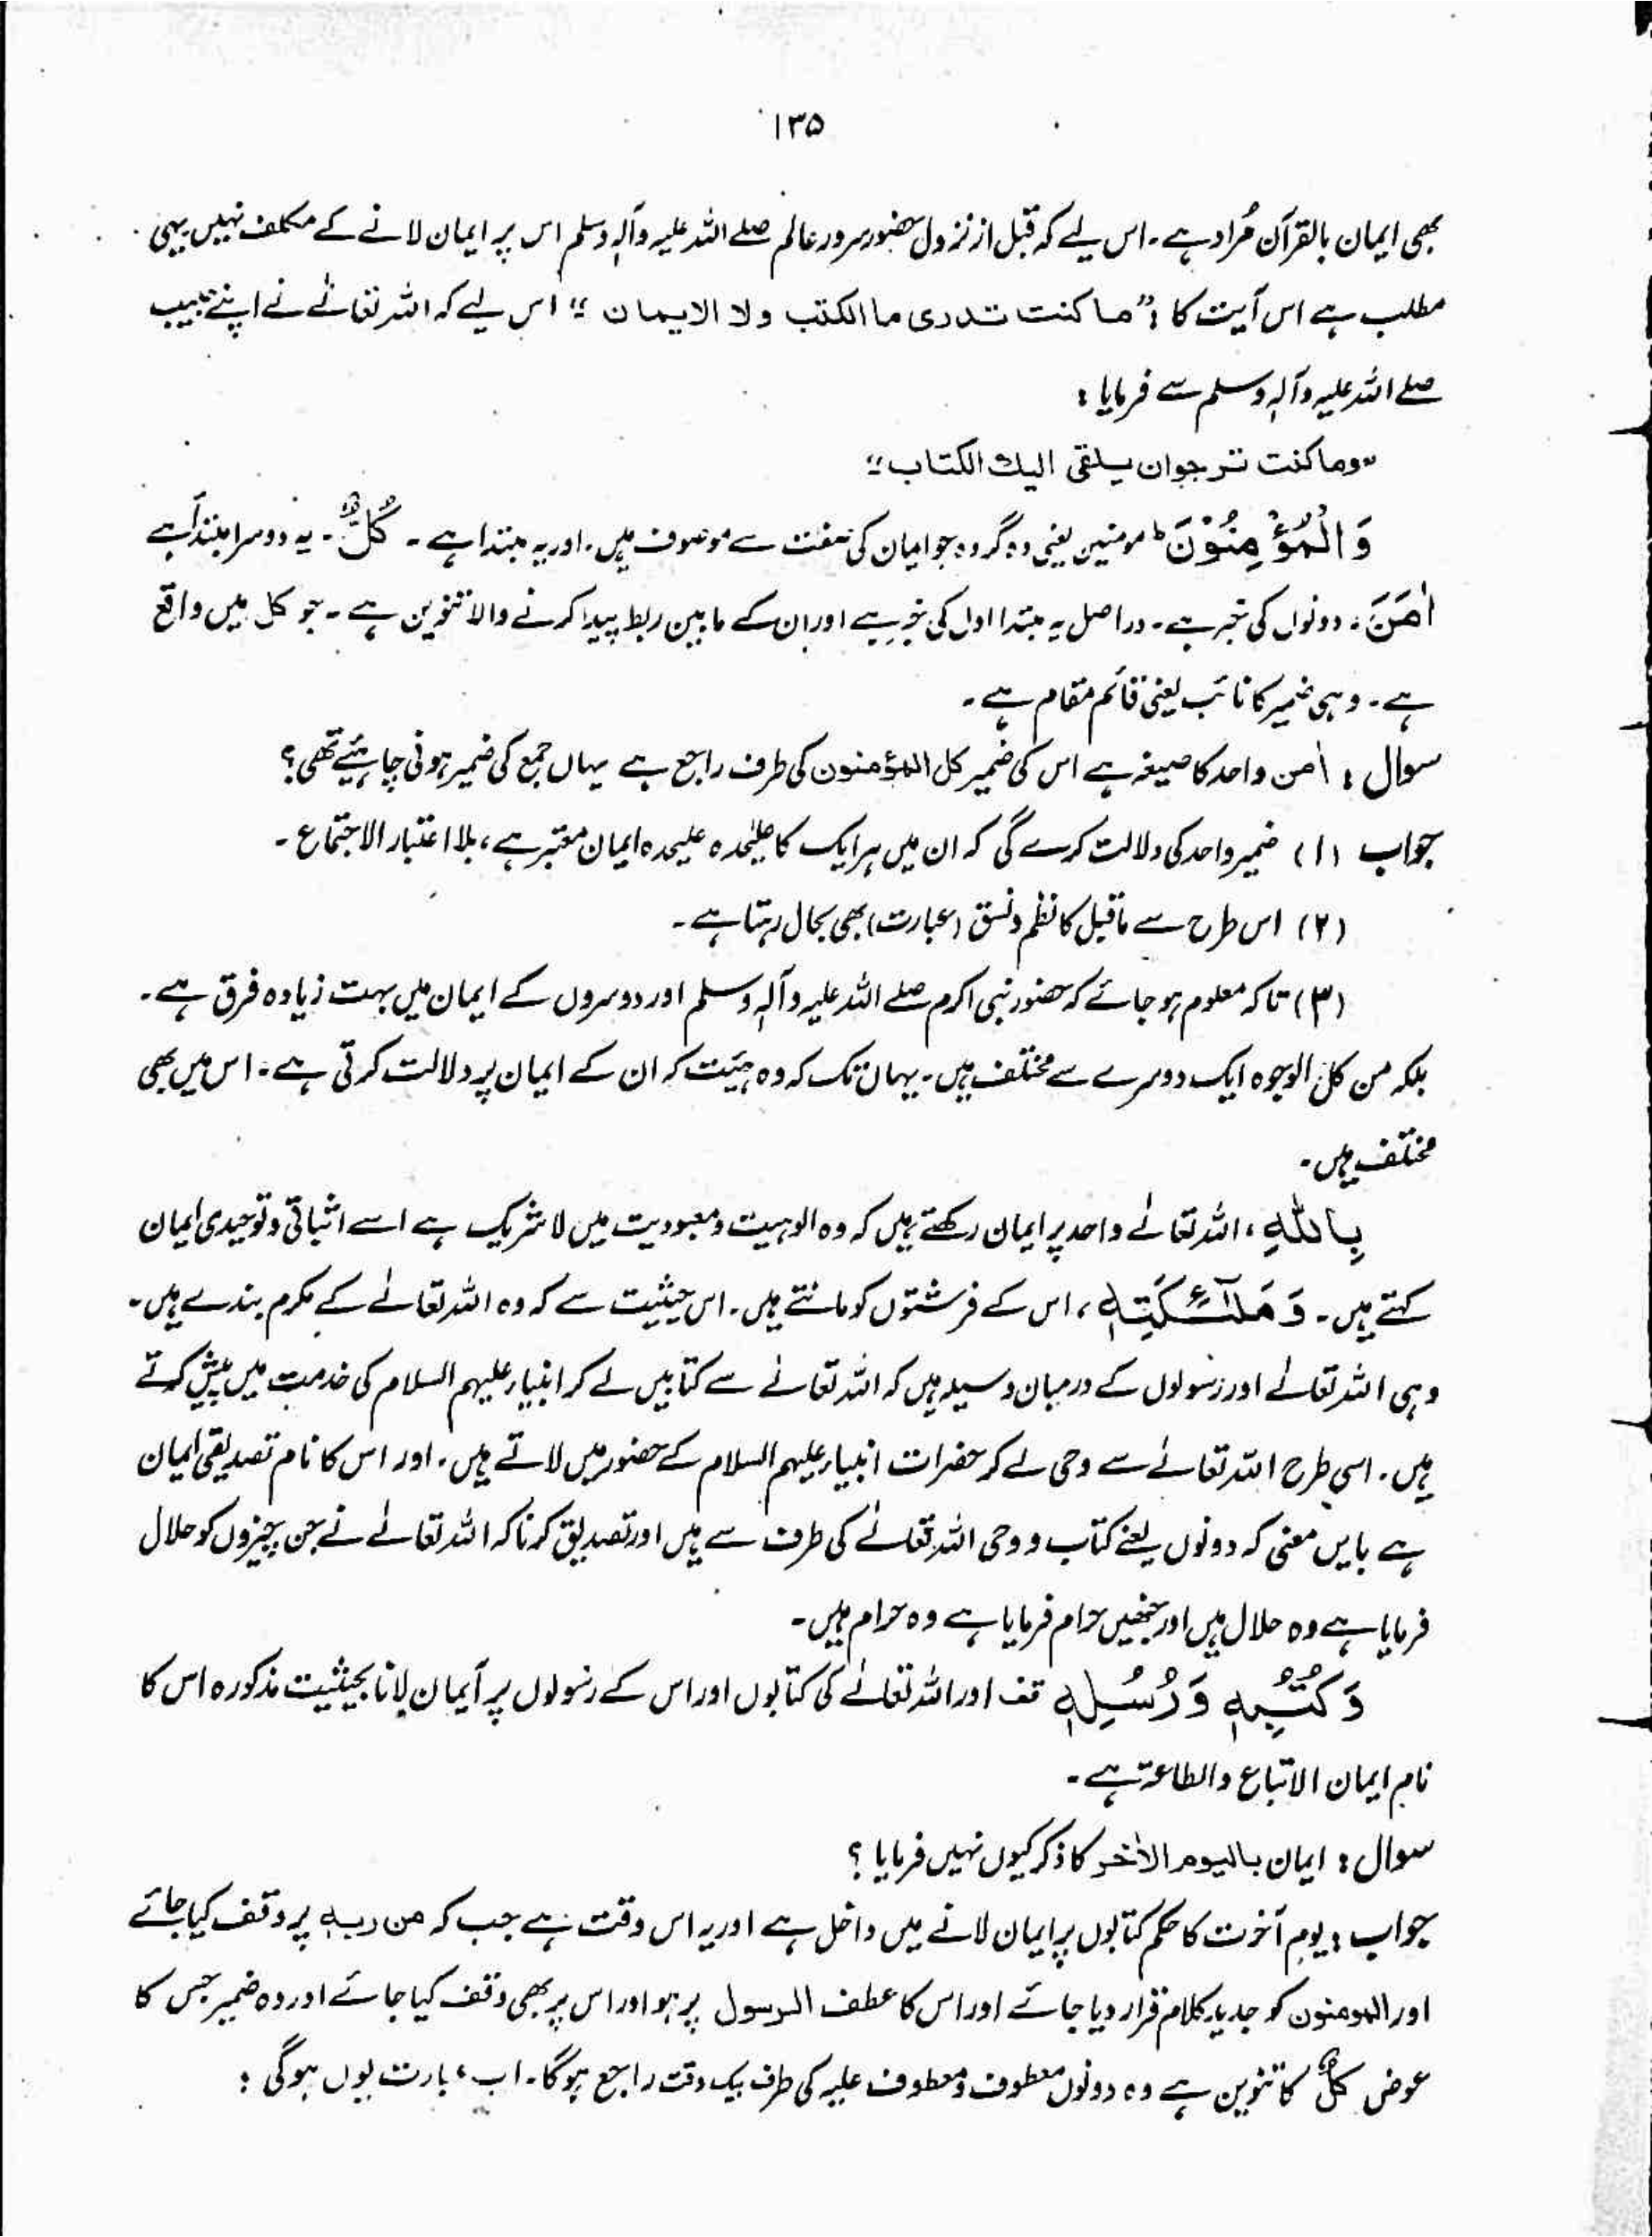 ۱۳۵
بھی ایمان بالقرآن مُراد ہے۔ اس لیے کہ قبل از نزول حضور سرور عالم صلے اللہ علیہ وآلہٖ وسلم اس پر ایمان لانے کے مکلف نہیں یہی
مطلب ہے اس آیت کا : ”ما کنت تدری ما الکتٰب ولا الایمان“ اس لیے کہ اللہ تعالےٰ نے اپنے حبیب
صلے اللہ علیہ وآلہٖ وسلم سے فرمایا :
”وما کنت ترجوا ان یلقی الیک الکتاب“
وَالْمُؤْمِنُوْنَ ؕ مومنین یعنی وہ گروہ جو ایمان کی صفت سے موصوف ہیں۔ اور یہ مبتدا ہے۔ کُلٌّ۔ یہ دوسرا مبتدا ہے
اٰمَنَ۔ دونوں کی خبر ہے۔ دراصل یہ مبتدا اول کی خبر ہے اور ان کے مابین ربط پیدا کرنے والا تنوین ہے۔ جو کل میں واقع
ہے۔ وہی ضمیر کا نائب یعنی قائم مقام ہے۔
سوال : اٰمن واحد کا صیغہ ہے اس کی ضمیر کل المؤمنون کی طرف راجع ہے یہاں جمع کی ضمیر ہونی چاہیئے تھی؟
جواب (۱) ضمیر واحد کی دلالت کرے گی کہ ان میں ہر ایک کا علیٰحدہ علیحدہ ایمان معتبر ہے، بلا اعتبار الاجتماع۔
(۲) اس طرح سے ماقبل کا نظم ونسق (عبارت) بھی بحال رہتا ہے۔
(۳) تاکہ معلوم ہو جائے کہ حضور نبی اکرم صلے اللہ علیہ وآلہٖ وسلم اور دوسروں کے ایمان میں بہت زیادہ فرق ہے۔
بلکہ من کل الوجوہ ایک دوسرے سے مختلف ہیں۔ یہاں تک کہ وہ ہیئت کہ ان کے ایمان پر دلالت کرتی ہے۔ اس میں بھی
مختلف ہیں۔
بِاللّٰہِ، اللہ تعالےٰ واحد پر ایمان رکھتے ہیں کہ وہ الوہیت ومعبودیت میں لا شریک ہے اسے اثباتی وتوحیدی ایمان
کہتے ہیں۔ وَمَلٰٓئِکَتِہٖ، اس کے فرشتوں کو مانتے ہیں۔ اس حیثیت سے کہ وہ اللہ تعالےٰ کے مکرم بندے ہیں۔
وہی اللہ تعالےٰ اور رسولوں کے درمیان وسیلہ ہیں کہ اللہ تعالےٰ سے کتابیں لے کر انبیاء علیہم السلام کی خدمت میں پیش کرتے
ہیں۔ اسی طرح اللہ تعالےٰ سے وحی لے کر حضرات انبیاء علیہم السلام کے حضور میں لاتے ہیں۔ اور اس کا نام تصدیقی ایمان
ہے بایں معنی کہ دونوں یعنے کتاب و وحی اللہ تعالےٰ کی طرف سے ہیں اور تصدیق کرنا کہ اللہ تعالےٰ نے جن چیزوں کو حلال
فرمایا ہے وہ حلال ہیں اور جنھیں حرام فرمایا ہے وہ حرام ہیں۔
وَکُتُبِہٖ وَرُسُلِہٖ قف اور اللہ تعالےٰ کی کتابوں اور اس کے رسولوں پر ایمان لانا بحیثیت مذکورہ اس کا
نام ایمان الاتباع والطاعۃ ہے۔
سوال : ایمان بالیوم الاٰخر کا ذکر کیوں نہیں فرمایا ؟
جواب : یوم آخرت کا حکم کتابوں پر ایمان لانے میں داخل ہے اور یہ اس وقت ہے جب کہ من ربہٖ پر وقف کیا جائے
اور المومنون کو جدید کلام قرار دیا جائے اور اس کا عطف الرسول پر ہو اور اس پر بھی وقف کیا جائے اور وہ ضمیر جس کا
عوض کلٌّ کا تنوین ہے وہ دونوں معطوف ومعطوف علیہ کی طرف بیک وقت راجع ہوگا۔ اب عبارت یوں ہوگی :